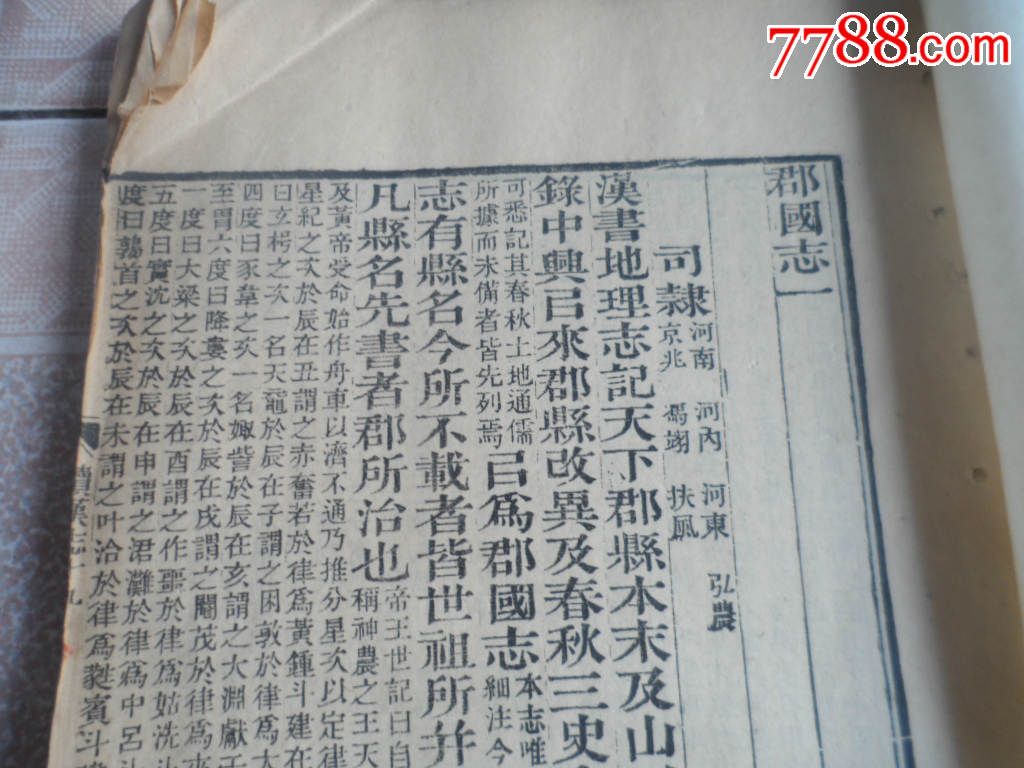 7788.com
郡國志一
司隷 河南 河內 河東 弘農
京兆 馮翊 扶風
漢書地理志記天下郡縣本末及山
錄中興㠯來郡縣改異及春秋三史
可悉記其春秋土地通儒
所據而未備者皆先列焉
㠯爲郡國志
本志唯
細注今
志有縣名今所不載者皆世祖所并
凡縣名先書者郡所治也
帝王世記曰自
稱神農之王天
及黃帝受命始作舟車以濟不通乃推分星次以定律
星紀之次於辰在丑謂之赤奮若於律爲黃鍾斗建在
曰玄枵之次一名天黿於辰在子謂之困敦於律爲大
四度曰豕韋之次一名娵訾於辰在亥謂之大淵獻
至胃六度曰降婁之次於辰在戌謂之閹茂於律爲夾
一度曰大梁之次於辰在酉謂之作噩於律爲姑洗
五度曰實沈之次於辰在申謂之涒灘於律爲中呂
度曰鶉首之次於辰在未謂之叶洽於律爲蕤賓斗
續漢志十九